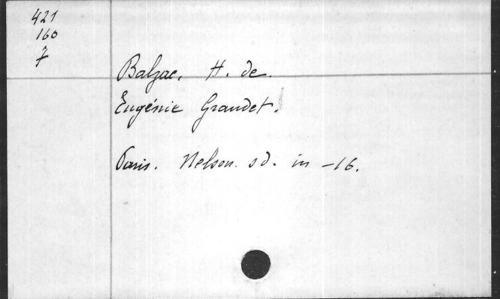 421
160
7
Balzac, H. de.
Eugénie Grandet.
Paris. Nelson. sd. in -16.